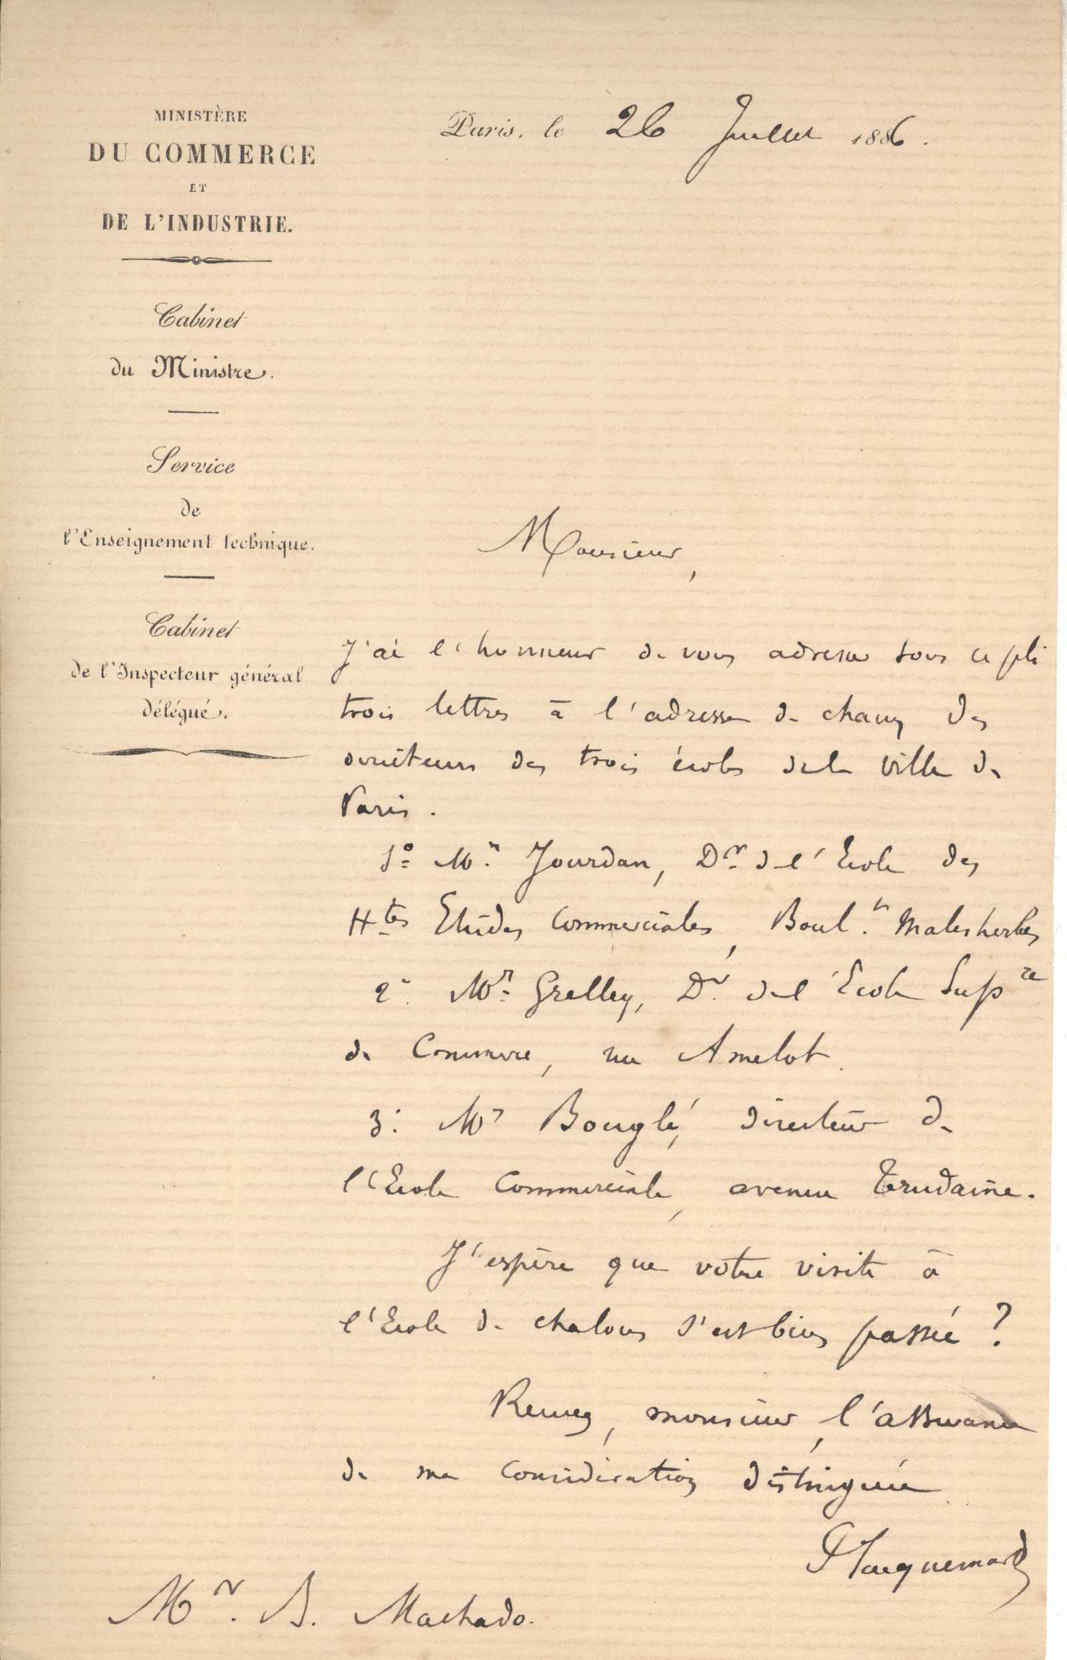 MINISTÈRE
DU COMMERCE
ET
DE L'INDUSTRIE.
Cabinet
du Ministre.
Service
de
l'Enseignement technique.
Cabinet
de l'Inspecteur général
délégué.
Paris, le 26 Juillet 1886.
Monsieur,
J'ai l'honneur de vous adresser sous ce pli
trois lettres à l'adresse de chacun des
directeurs des trois écoles de la ville de
Paris.
1º Mr Jourdan, Dr de l'Ecole des
Htes Etudes Commerciales, Boul. Malesherbes
2º Mr Grelley, Dr de l'Ecole Supre
de Commerce, rue Amelot.
3º Mr Bouglé, directeur de
l'Ecole Commerciale, avenue Trudaine.
J'espère que votre visite à
l'Ecole de Chalons s'est bien passée ?
Recevez, monsieur, l'assurance
de ma considération distinguée
Jacquemard
Mr. B. Machado.